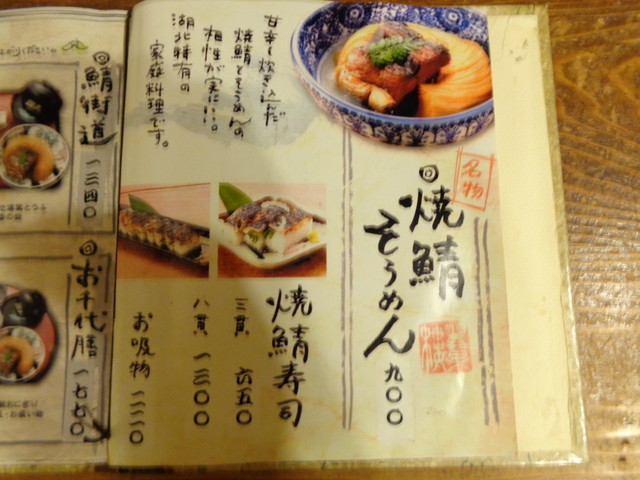 名物
焼鯖
そうめん 九〇〇
甘辛く炊き込んだ
焼鯖とそうめんの
相性が実にいい。
湖北特有の
家庭料理です。
焼鯖寿司
三貫 六五〇
八貫 一三〇〇
お吸物 二二〇
鯖街道 一三四〇
お千代膳 一七七〇